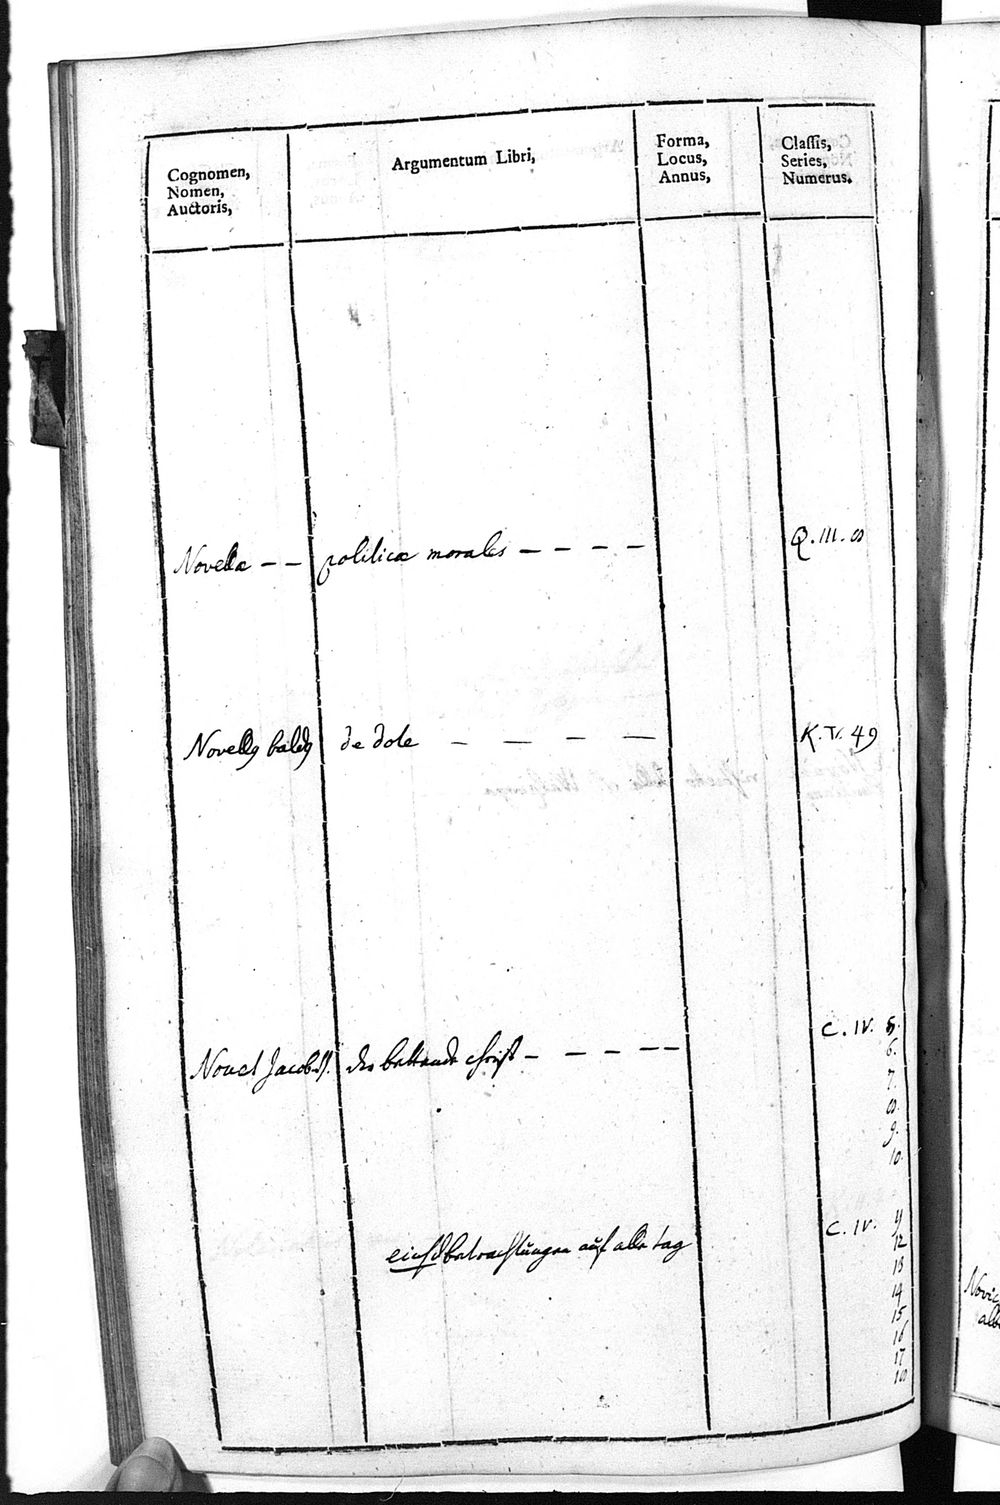 Cognomen,
Nomen,
Auctoris,
Argumentum Libri,
Forma,
Locus,
Annus,
Classis,
Series,
Numerus.
Novellæ – – politicæ morales – – – – Q. III. 8
de dole – – – – K. IV. 49
Nouet Jacob. der bettende christ – – – – – C. IV. 5.
6.
7.
8.
9.
10.
betrachtungen auf alle tag C. IV. 11
12
13
14
15
16
17
18
Novic